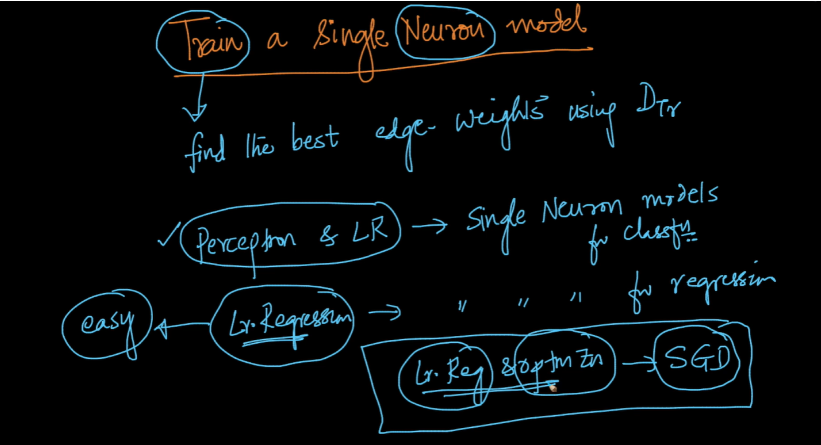 Train a Single Neuron model
find the best edge-weights using DTr
✓ Perceptron & LR → Single Neuron models
for classfn
easy ← Lr. Regression → " " " for regression
Lr. Reg & optmzn → SGD